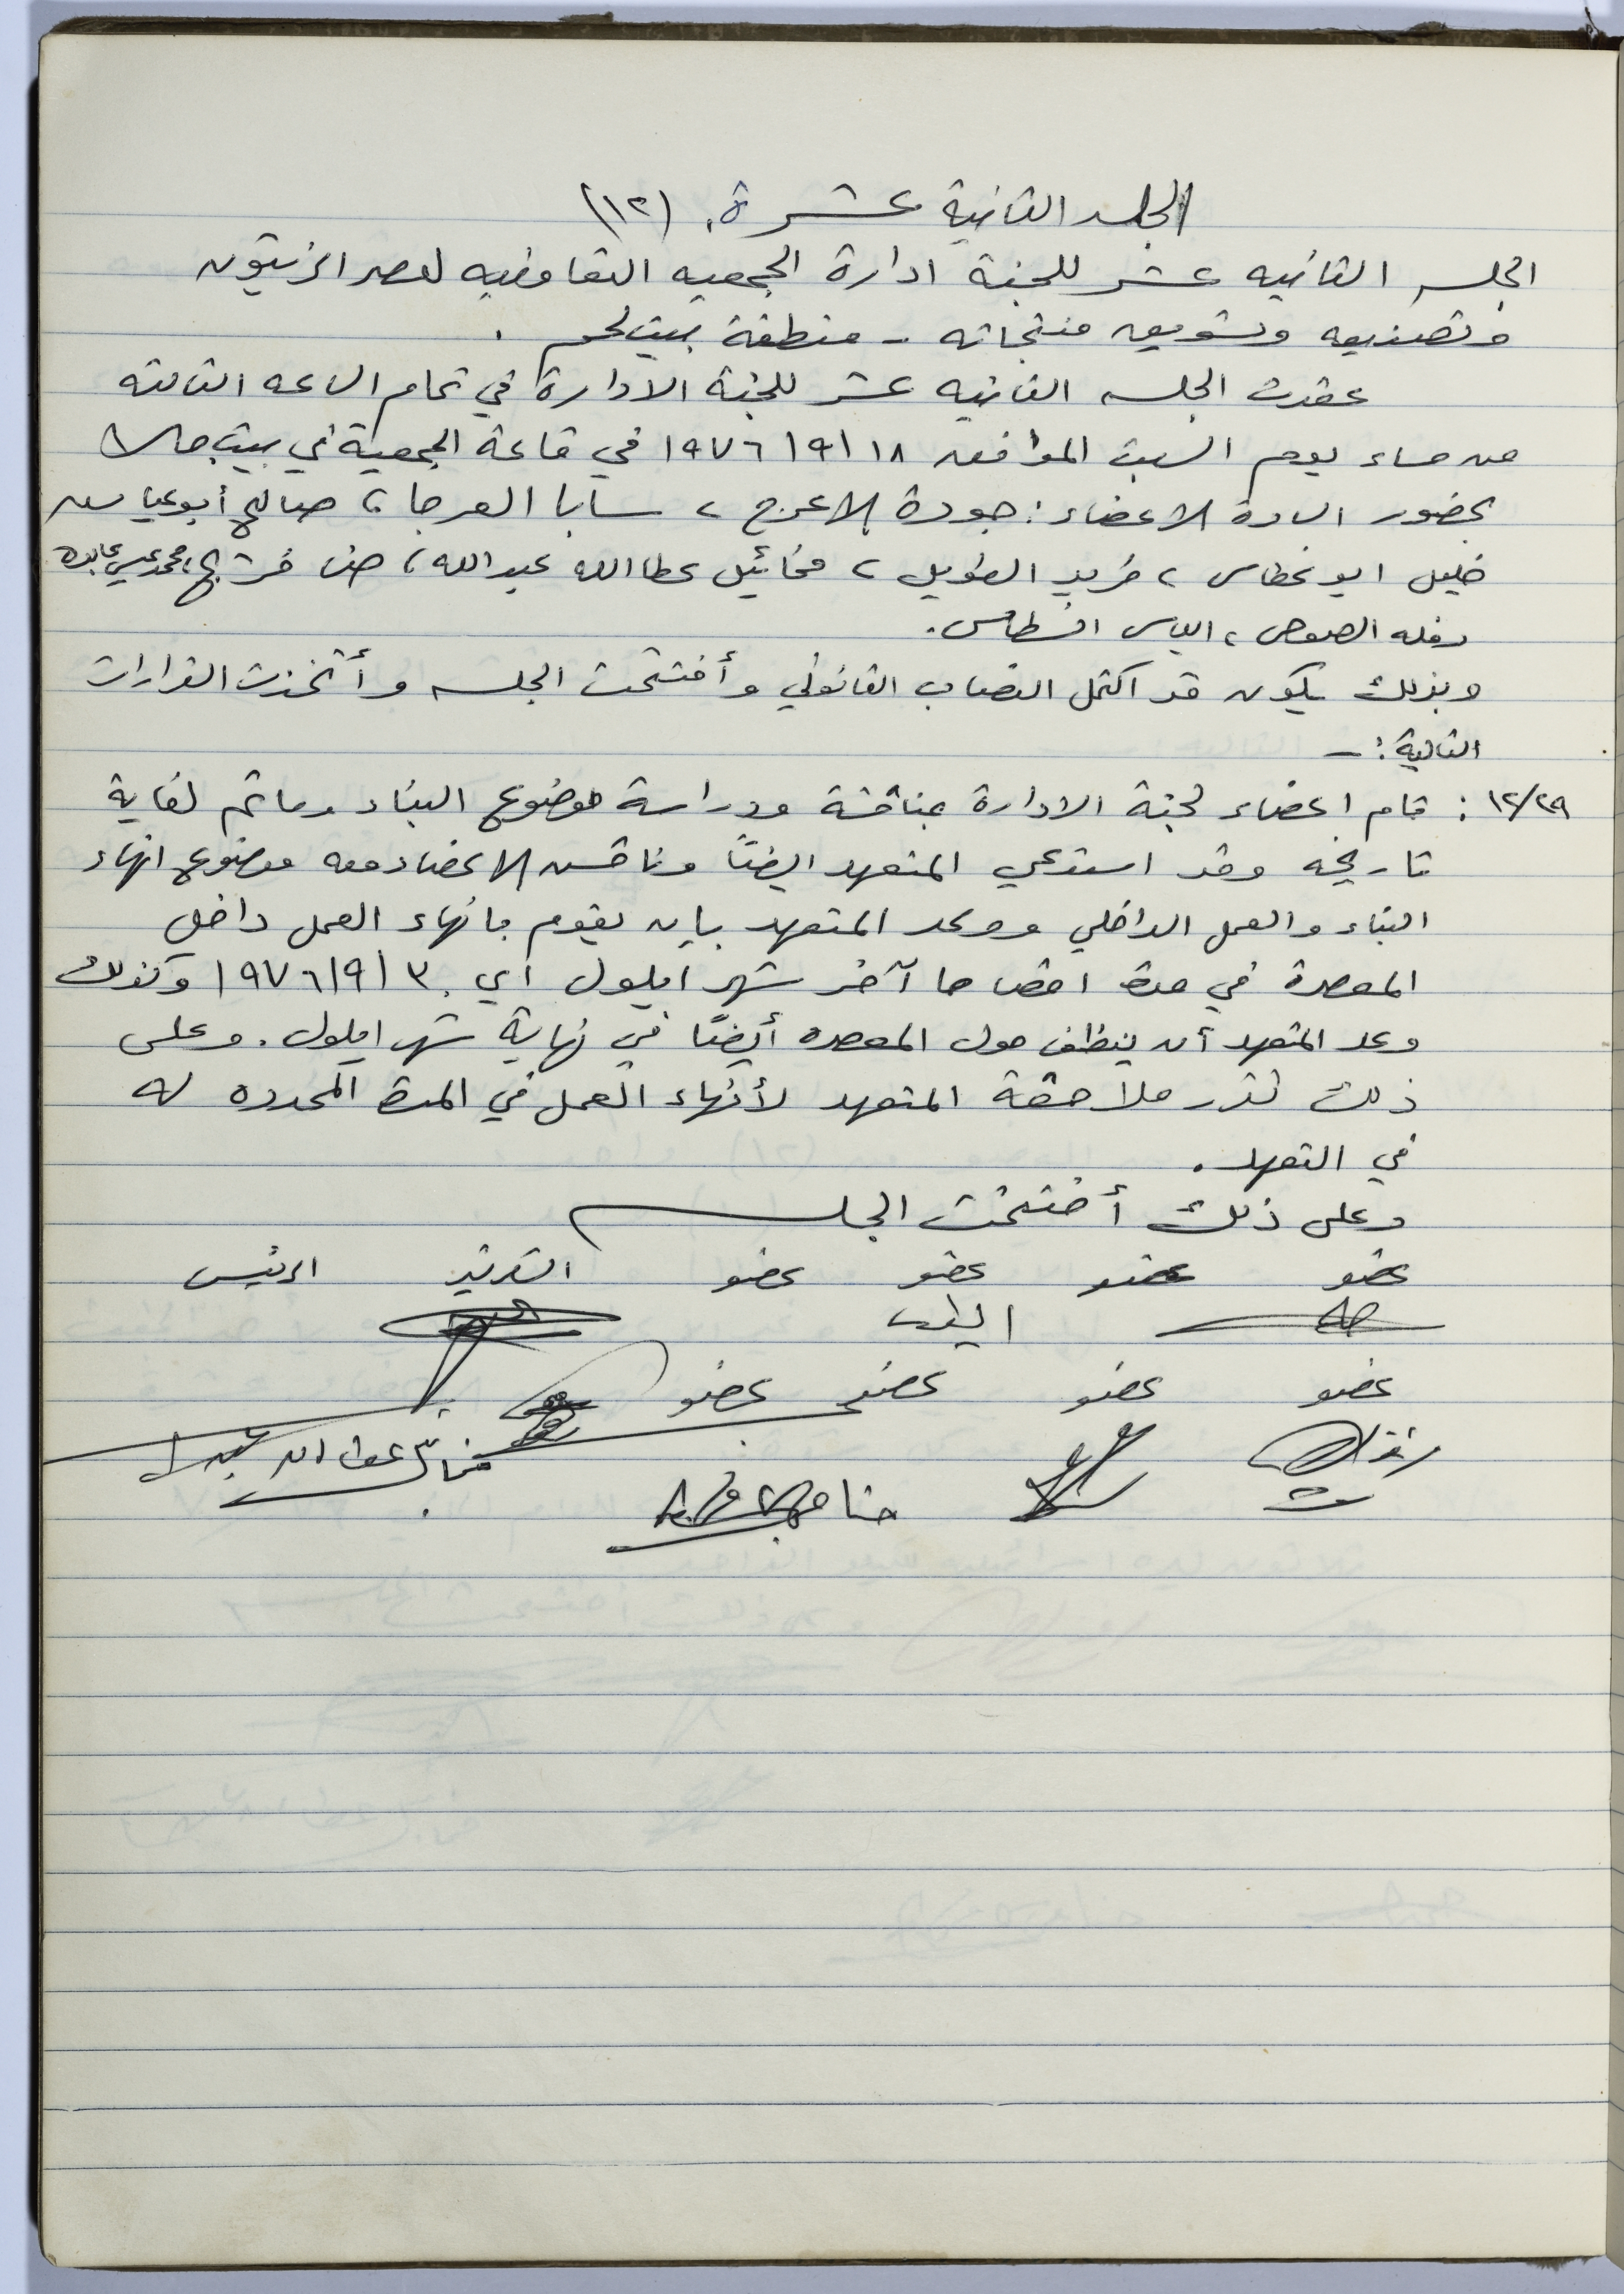 الجلسه الثانية عشرة. (١٢)
الجلسه الثانيه عشر للجنة ادارة الجمعيه التعاونيه لعصر الزيتون
وتصنيعه وتسويق منتجاته - منطقة بيت لحم .
عقدت الجلسه الثانيه عشر للجنة الادارة في تمام الساعه الثالثه
من مساء يوم السبت الموافق ١٨/٩/١٩٧٦ في قاعة الجمعية في بيت جالا
بحضور الساده الاعضاء: جودة الاعرج ، سابا العرجا، صالح أبو عياش
خليل ابو غطاس ، فريد الطويل ، مخائيل عطا الله عبد الله، حنا فريج، محمد عيسى عابده
دخله الصوص ، الياس اقسطاس.
وبذلك يكون قد اكتمل النصاب القانوني وأفتتحت الجلسه وأتخذت القرارات
التالية: -
١٢/٢٩ : قام اعضاء لجنة الادارة بمناقشة ودراسة موضوع البناء وماتم لغاية
تاريخه وقد استدعي المتعهد ايضاً وناقش الاعضاء معه موضوع انهاء
البناء والعمل الداخلي ووعد المتعهد بان يقوم بانهاء العمل داخل
المعصرة في مدة اقصاها آخر شهر ايلول أي ٣٠/٩/١٩٧٦ وكذلك
وعد المتعهد أن ينظف حول المعصره أيضاً في نهاية شهر ايلول. وعلى
ذلك تقرر ملاحقة المتعهد لأنهاء العمل في المدة المحدده له
في التعهد.
وعلى ذلك أختتمت الجلسه
عضو عضو عضو عضو السكرتير الرئيس
عضو عضو عضو عضو
حنا فريج
مخائيل عطا الله عبد الله